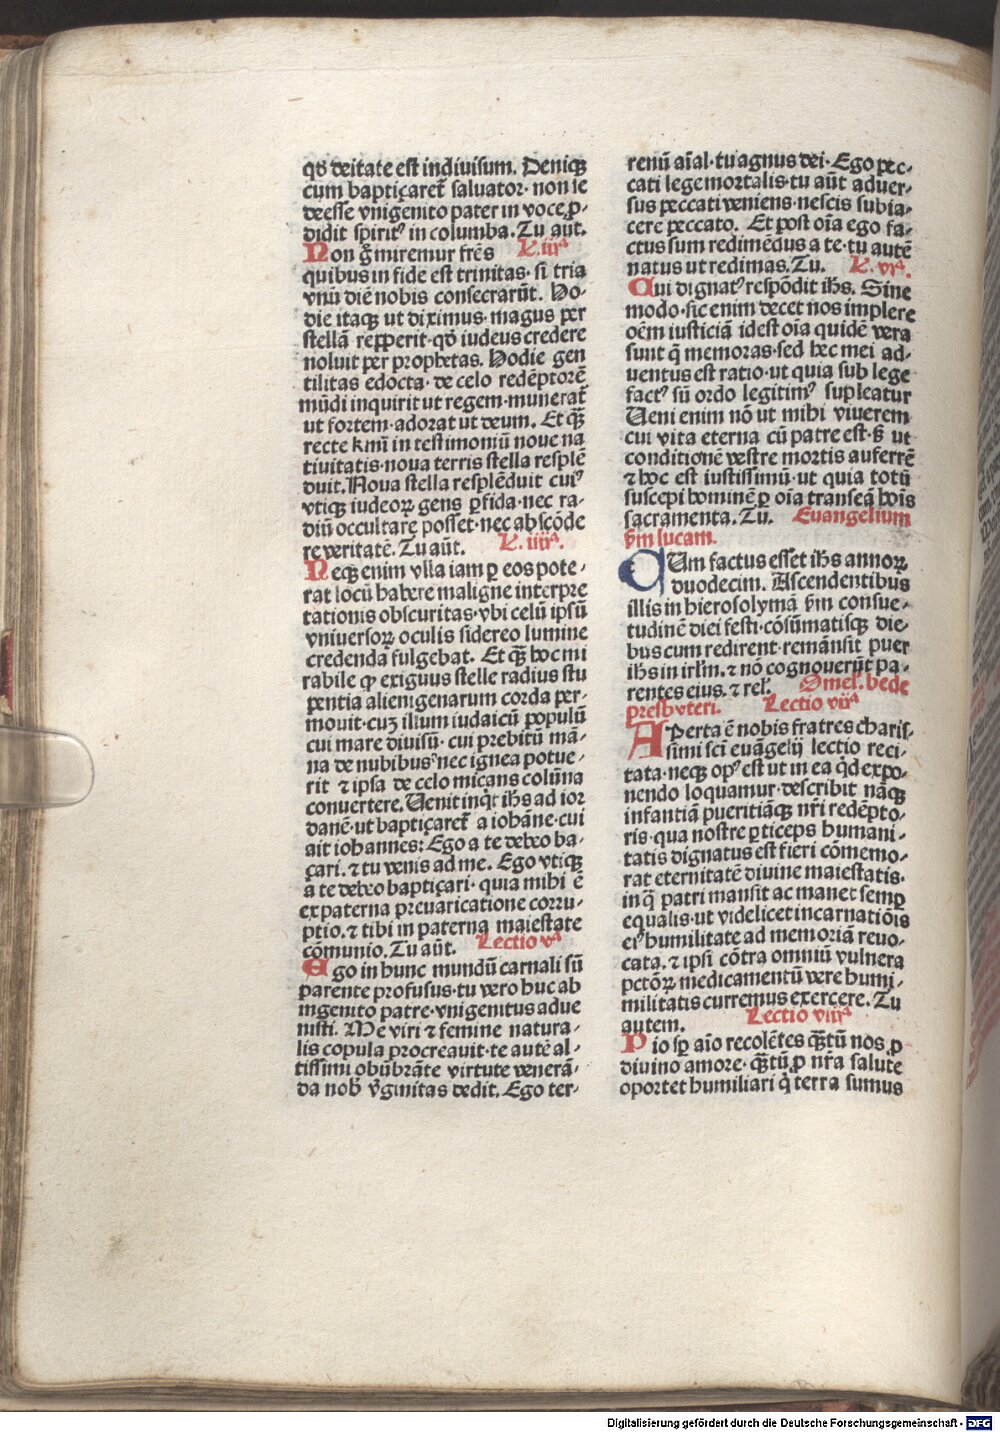 qđ deitate est indivisum. Deniqꝫ
cum baptiçaret̄ salvator· non se
deesse vnigenito pater in voce ꝓ-
didit spiritꝰ in columba. Tu aut.
Non g̊ miremur fr̄es L. iiiª
quibus in fide est trinitas· si tria
vnū diē nobis consecrarūt. Ho-
die itaqꝫ ut diximus· magus per
stellā repperit· qđ iudeus credere
noluit per prophetas. Hodie gen
tilitas edocta· de celo redēptorē
mūdi inquirit ut regem· munerat̄
ut fortem· adorat ut deum. Et qꝫ̄
recte kmī in testimoniū noue na
tiuitatis· noua terris stella resplē
duit. Noua stella resplēduit cuiꝰ
vtiqꝫ iudeoꝝ gens ꝑfida· nec ra-
diū occultare posset· nec abscōde
re veritatē. Tu aūt. L. iiiiª.
Neqꝫ enim vlla iam ꝑ eos pote-
rat locū habere maligne interpre
tationis obscuritas· vbi celū ipsū
vniuersoꝝ oculis sidereo lumine
credenda fulgebat. Et qꝫ̄ hoc mi
rabile ꝙ exiguus stelle radius stu
pentia alienigenarum corda per-
mouit· cuꝫ illum iudaicū populū
cui mare divisū· cui prebitū mā-
na de nubibus· nec ignea potue-
rit ⁊ ipsa de celo micans colūna
convertere. Uenit inq̇t ih̄s ad ior
danē· ut baptiçaret̄ a iohāne· cui
ait iohannes: Ego a te debeo ba-
çari. ⁊ tu venis ad me. Ego vtiqꝫ
a te debeo baptiçari· quia mihi ē
ex paterna preuaricatione corru-
ptio. ⁊ tibi in paterna maiestate
cōmunio. Tu aūt. Lectio vª
Ego in hunc mundū carnali sū
parente profusus· tu vero huc ab
ingenito patre· vnigenitus adue
nisti. Me viri ⁊ femine natura-
lis copula procreauit· te autē al-
tissimi obūbrāte virtute venerā-
da nob̄ v̄ginitas dedit. Ego ter-
renū aīal· tu agnus dei· Ego pec-
cati lege mortalis· tu aūt aduer-
sus peccati veniens· nescis subia-
cere peccato. Et post oīa ego fa-
ctus sum redimēdus a te· tu autē
natus ut redimas. Tu. L. vıª.
Cui dignatꝰ respōdit ih̄s. Sine
modo· sic enim decet nos implere
oēm iusticiā idest oīa quidē vera
sunt q̄ memoras· sed hec mei ad-
uentus est ratio· ut quia sub lege
factꝰ sū ordo legitimꝰ supleatur
Ueni enim nō ut mihi viuerem
cui vita eterna cū patre est· s̄ ut
conditionē vestre mortis auferrē
⁊ hoc est iustissimū· ut quia totū
suscepi hominē ꝑ oīa transeā hoīs
sacramenta. Tu. Euangelium
ẜm lucam.
CUm factus esset ih̄s annoꝝ
duodecim. Ascendentibus
illis in hierosolymā ẜm consue-
tudinē diei festi· cōsūmatisqꝫ die-
bus cum redirent· remāsit puer
ih̄s in irl̄m. ⁊ nō cognouerūt pa-
rentes eius. ⁊ rel̓. Omel̓. bede
presbyteri. Lectio viiª
APerta ē nobis fratres charis-
simi sc̄i euāgelij lectio reci-
tata· neqꝫ opꝰ est ut in ea q̇d expo-
nendo loquamur· describit nāqꝫ
infantiā pueritiāqꝫ nr̄i redēpto-
ris· qua nostre ꝑticeps humani-
tatis dignatus est fieri cōmemo-
rat eternitatē diuine maiestatis·
in q̄ patri mansit ac manet semꝑ
equalis· ut videlicet incarnatiōis
eiꝰ humilitate ad memoriā reuo-
cata. ⁊ ipsi cōtra omniū vulnera
pctōꝝ medicamentū vere humi-
militatis curremus exercere. Tu
autem. Lectio viiiª
Pio sꝑ aīo recolētes qꝫ̄tū nos ꝓ
diuino amore· qꝫ̄tū ꝓ nr̄a salute
oportet humiliari q̇ terra sumus
Digitalisierung gefördert durch die Deutsche Forschungsgemeinschaft - DFG